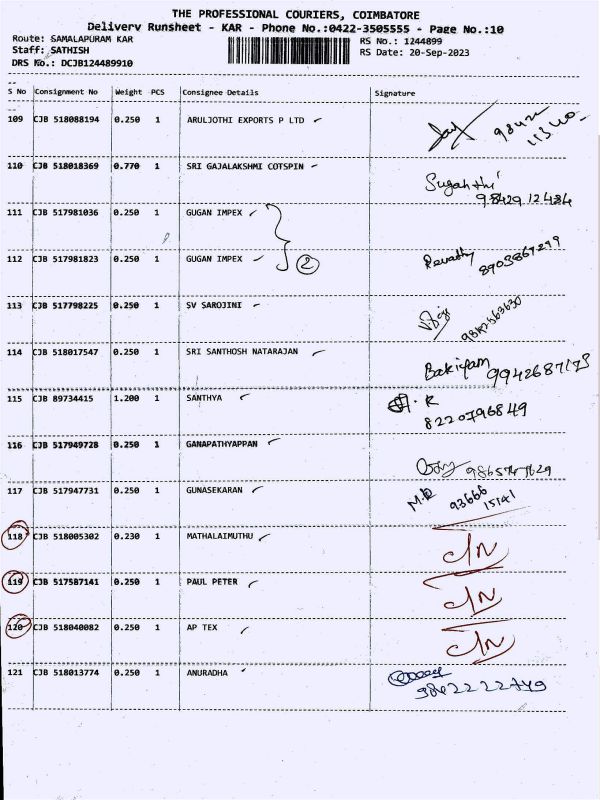 THE PROFESSIONAL COURIERS, COIMBATORE
Delivery Runsheet - KAR - Phone No.:0422-3505555 - Page No.:10
Route: SAMALAPURAM KAR RS No.: 1244899
Staff: SATHISH RS Date: 20-Sep-2023
DRS No.: DCJB124489910
S No Consignment No Weight PCS Consignee Details Signature
109 CJB 518088194 0.250 1 ARULJOTHI EXPORTS P LTD
110 CJB 518018369 0.770 1 SRI GAJALAKSHMI COTSPIN Suganthi
98429 12434
111 CJB 517981036 0.250 1 GUGAN IMPEX
2
112 CJB 517981823 0.250 1 GUGAN IMPEX Revathy 8903867299
113 CJB 517798225 0.250 1 SV SAROJINI
114 CJB 518017547 0.250 1 SRI SANTHOSH NATARAJAN Bakiyam 9942687173
115 CJB 89734415 1.200 1 SANTHYA R
8220796849
116 CJB 517949728 0.250 1 GANAPATHYAPPAN
117 CJB 517947731 0.250 1 GUNASEKARAN M.R 93666
15141
118 CJB 518005302 0.230 1 MATHALAIMUTHU
119 CJB 517587141 0.250 1 PAUL PETER
120 CJB 518040082 0.250 1 AP TEX
121 CJB 518013774 0.250 1 ANURADHA
9842222749